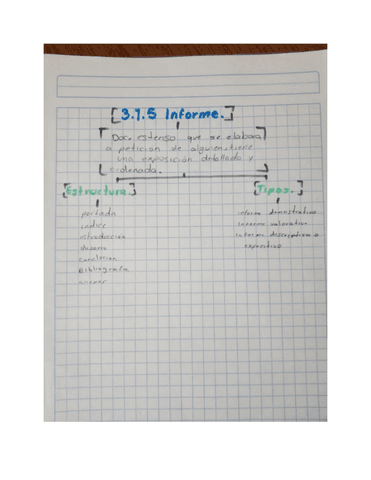 3.1.5 Informe.
Doc. estenso que se elabora
a petición de alguien, tiene
una exposición detallada y
ordenada.
Estructura.
Tipos.
portada
indice
introducción
conclusión
Bibliografía
anexos
informe demostrativo
informe valorativo
informe descriptivo o
expositivo